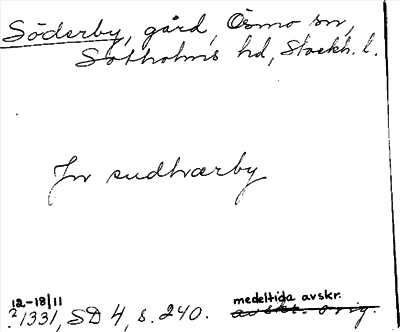 Söderby, gård, Ösmo sn,
Sotholms hd, Stockh. l.
Jn sudhrærby
12-18/11
?1331, SD 4, s. 240.
medeltida avskr.
avskr. orig.